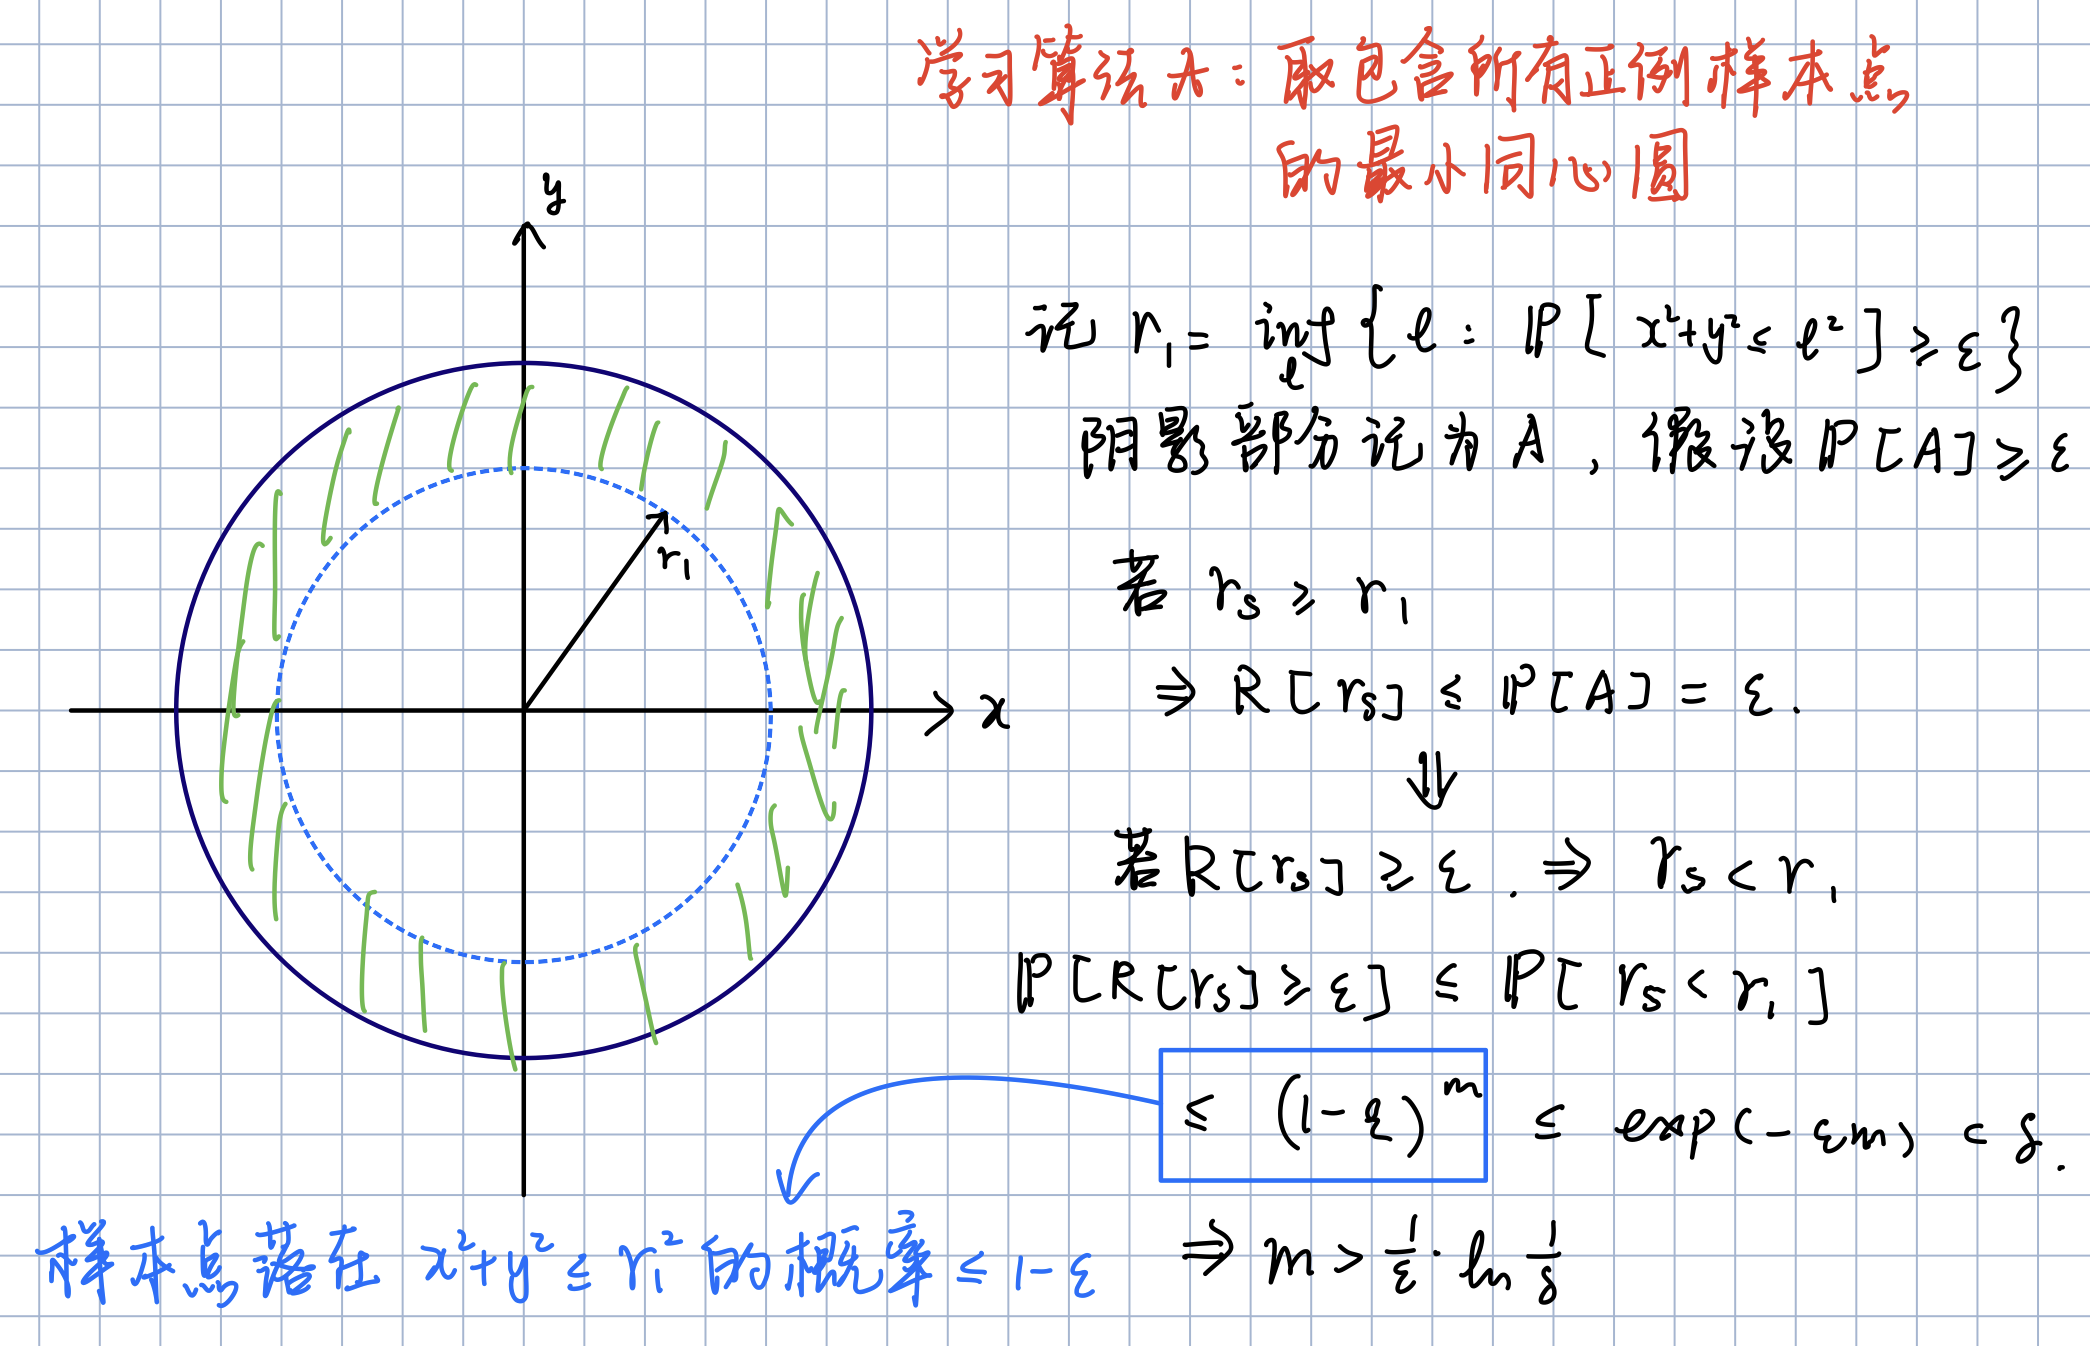 学习算法 A: 取包含所有正例样本点
的最小同心圆
y
x
r₁
记 r₁ = inf_ℓ { ℓ : ℙ[ x²+y² ≤ ℓ² ] ≥ ε }
阴影部分记为 A , 假设 ℙ[A] ≥ ε
若 r_s ≥ r₁
⇒ R[r_s] ≤ ℙ[A] = ε.
⇓
若 R[r_s] ≥ ε . ⇒ r_s < r₁
ℙ[R[r_s] ≥ ε] ≤ ℙ[ r_s < r₁ ]
≤ (1-ε)^m ≤ exp(-εm) < δ.
样本点落在 x²+y² ≤ r₁² 的概率 ≤ 1-ε
⇒ m > 1/ε · ln 1/δ